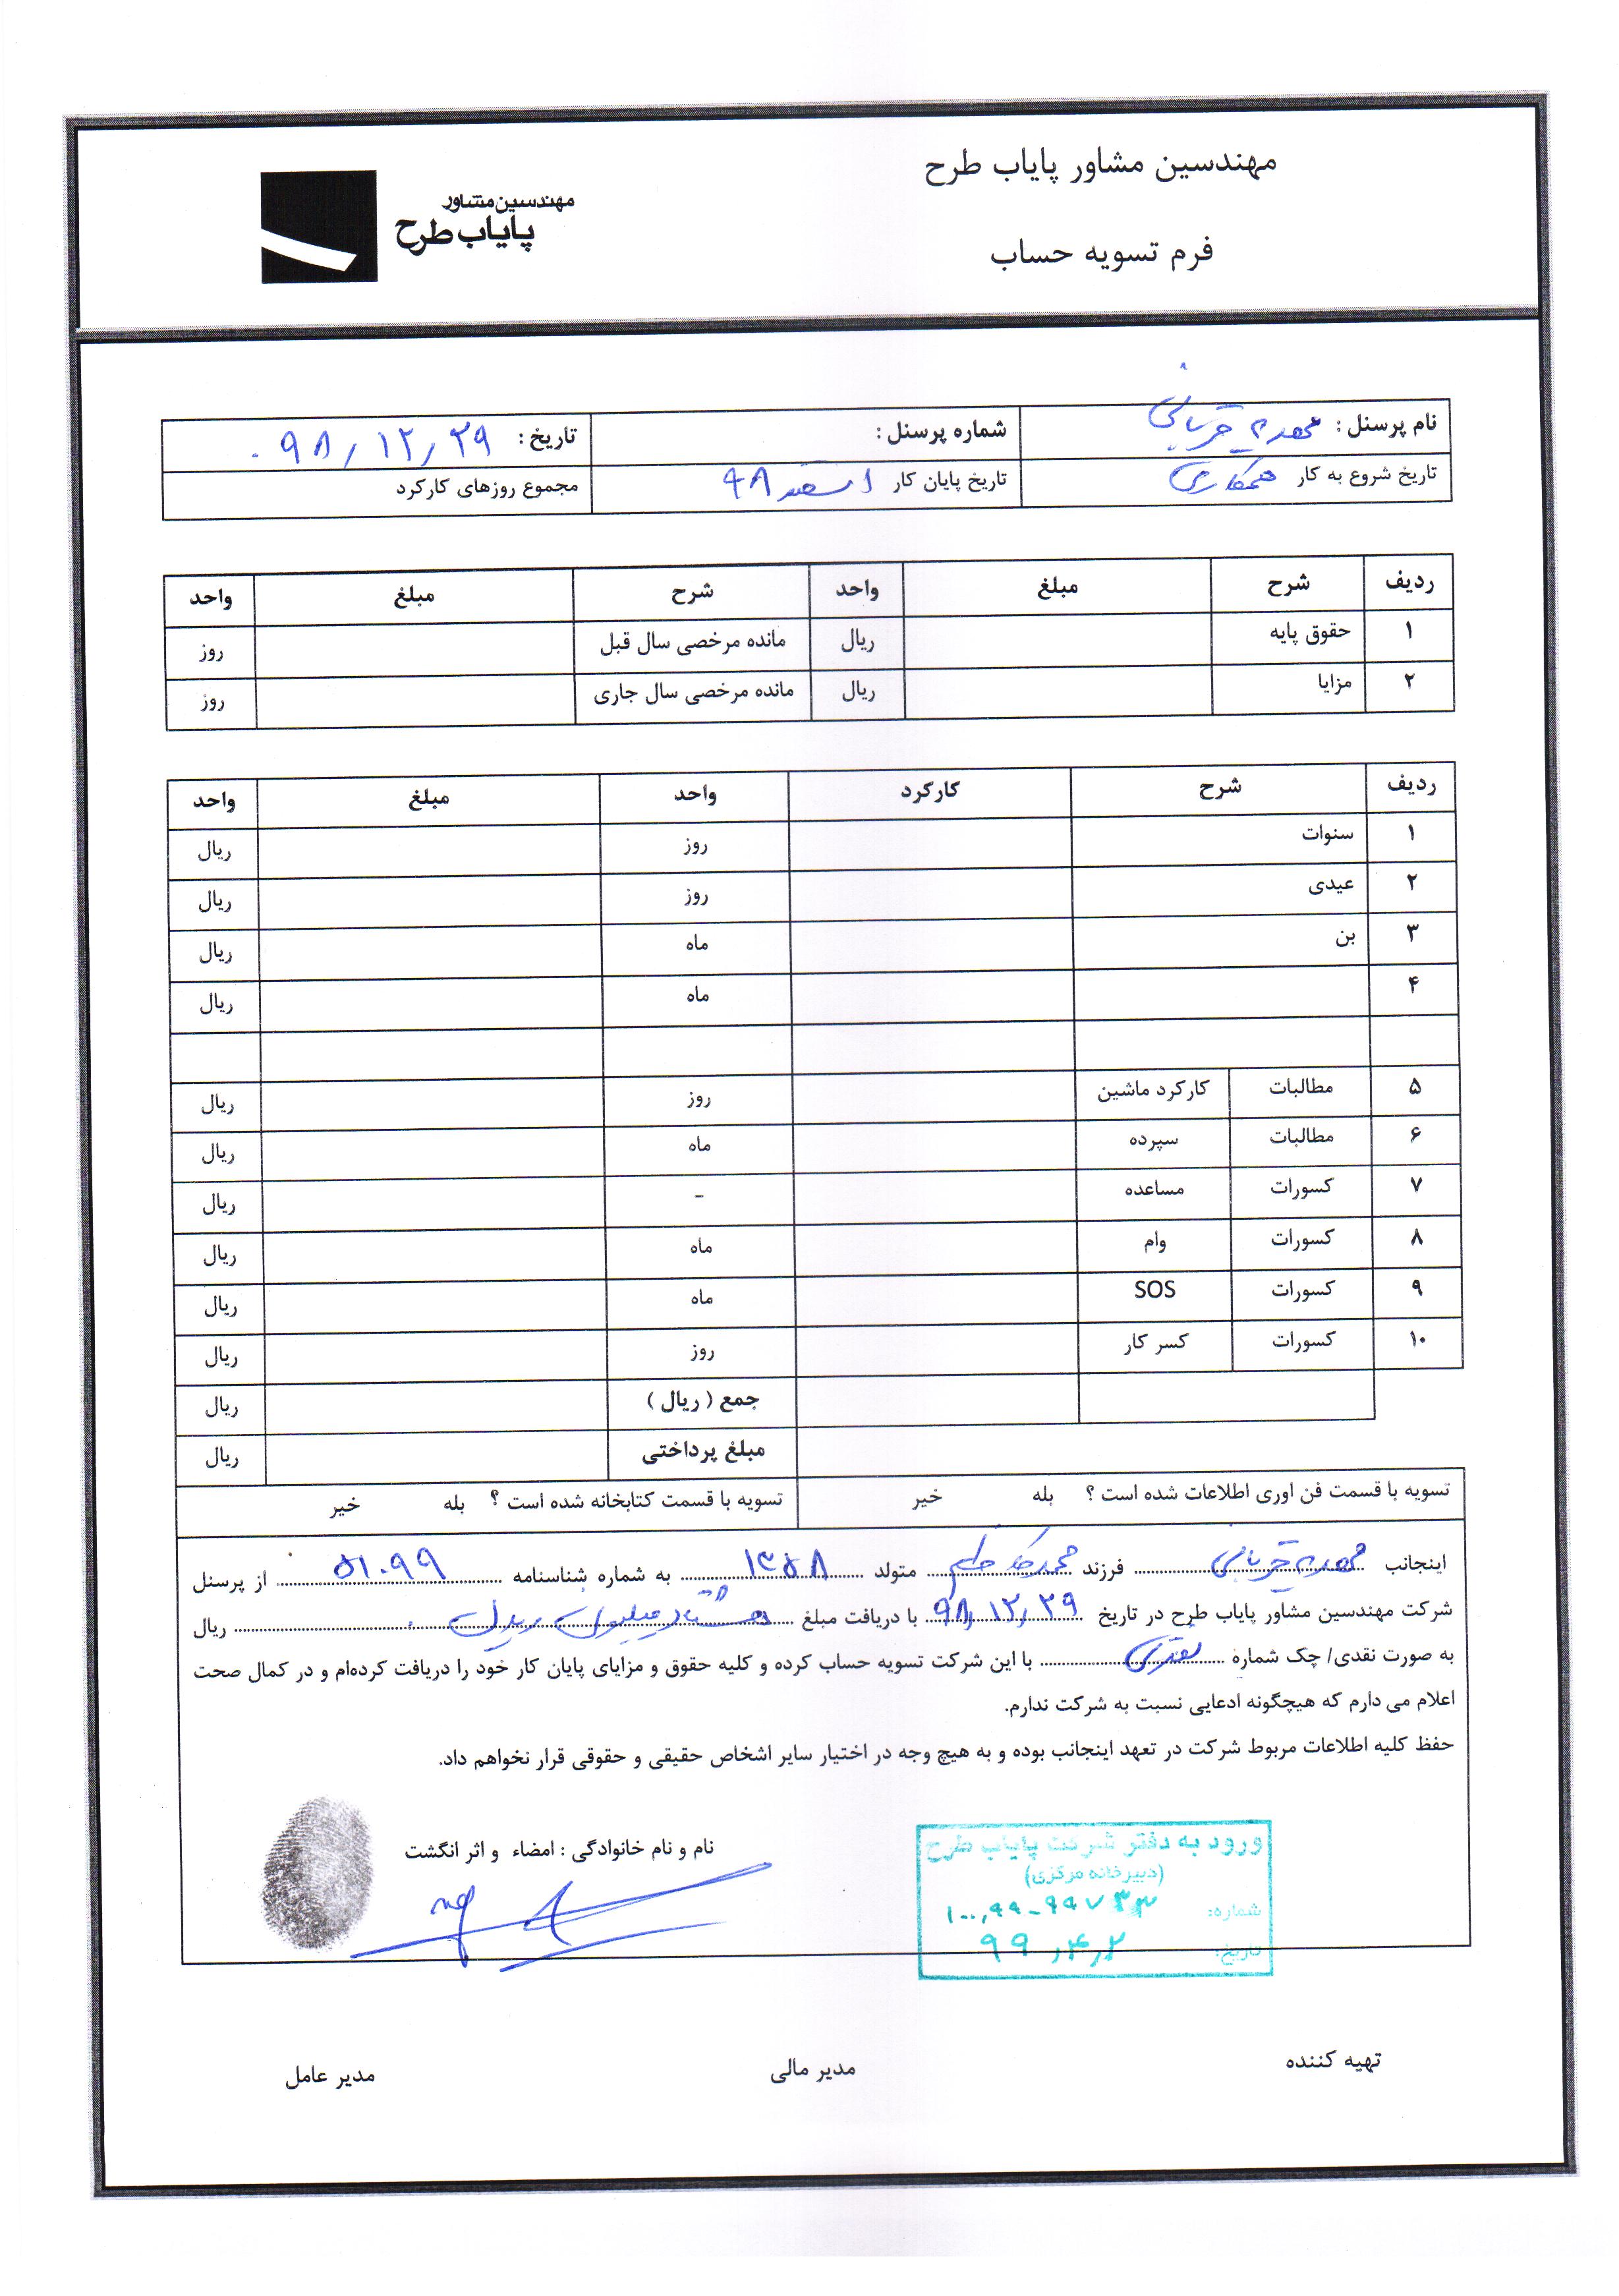 مهندسین مشاور پایاب طرح
مهندسین مشاور
پایاب طرح
فرم تسویه حساب
نام پرسنل : قربانی شماره پرسنل : تاریخ : ۹۸/۱۲/۲۹
تاریخ شروع به کار همکاری تاریخ پایان کار اسفند ۹۸ مجموع روزهای کارکرد
ردیف شرح مبلغ واحد شرح مبلغ واحد
۱ حقوق پایه ریال مانده مرخصی سال قبل روز
۲ مزایا ریال مانده مرخصی سال جاری روز
ردیف شرح کارکرد واحد مبلغ واحد
۱ سنوات روز ریال
۲ عیدی روز ریال
۳ بن ماه ریال
۴ ماه ریال
۵ مطالبات کارکرد ماشین روز ریال
۶ مطالبات سپرده ماه ریال
۷ کسورات مساعده - ریال
۸ کسورات وام ماه ریال
۹ کسورات SOS ماه ریال
۱۰ کسورات کسر کار روز ریال
جمع ( ریال ) ریال
مبلغ پرداختی ریال
تسویه با قسمت فن اوری اطلاعات شده است ؟ بله خیر تسویه با قسمت کتابخانه شده است ؟ بله خیر
اینجانب قربانی فرزند متولد ۱۳۵۸ به شماره شناسنامه ۵۱۰۹۹ از پرسنل
شرکت مهندسین مشاور پایاب طرح در تاریخ ۹۸/۱۲/۲۹ با دریافت مبلغ هشتاد میلیون ریال ریال
به صورت نقدی/ چک شماره نقدی با این شرکت تسویه حساب کرده و کلیه حقوق و مزایای پایان کار خود را دریافت کرده‌ام و در کمال صحت
اعلام می دارم که هیچگونه ادعایی نسبت به شرکت ندارم.
حفظ کلیه اطلاعات مربوط شرکت در تعهد اینجانب بوده و به هیچ وجه در اختیار سایر اشخاص حقیقی و حقوقی قرار نخواهم داد.
نام و نام خانوادگی : امضاء و اثر انگشت
ورود به دفتر شرکت پایاب طرح
(دبیرخانه مرکزی)
شماره: ۱۰۰,۹۹-۹۹۷۳۳
تاریخ: ۹۹,۴,۲
تهیه کننده مدیر مالی مدیر عامل